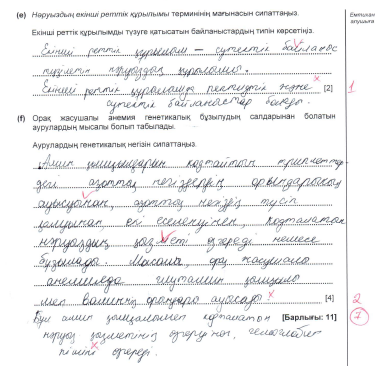 (e) Нәруыздың екінші реттік құрылымы терминінің мағынасын сипаттаңыз.
Емтихан
алушыға
Екінші реттік құрылымды түзуге қатысатын байланыстардың типін көрсетіңіз.
Екінші реттік құрылым – сутектік байланыс
түзілетін нәруыздың құрылымы.
Екінші реттік құрылымда пептидтік және [2]
сутектік байланыстар болады.
1
(f) Орақ жасушалы анемия генетикалық бұзылудың салдарынан болатын
аурулардың мысалы болып табылады.
Аурулардың генетикалық негізін сипаттаңыз.
Амин қышқылдарын кодтайтын триплеттер
азоттық негіздердің орындарының
ауысуынан, азоттық негіздің түсіп
қалуынан, екі еселенуінен, кодталатын
нәруыздың қызметі өзгереді немесе
бұзылады. Мысалы, орақ жасушалы
анемияда глутамин қышқылы
мен валиннің орындары ауысады [4]
2
Бұл амин қышқылымен кодталатын [Барлығы: 11]
7
нәруыз қызметінің өзгеруінен, гемоглобин
пішіні өзгереді.